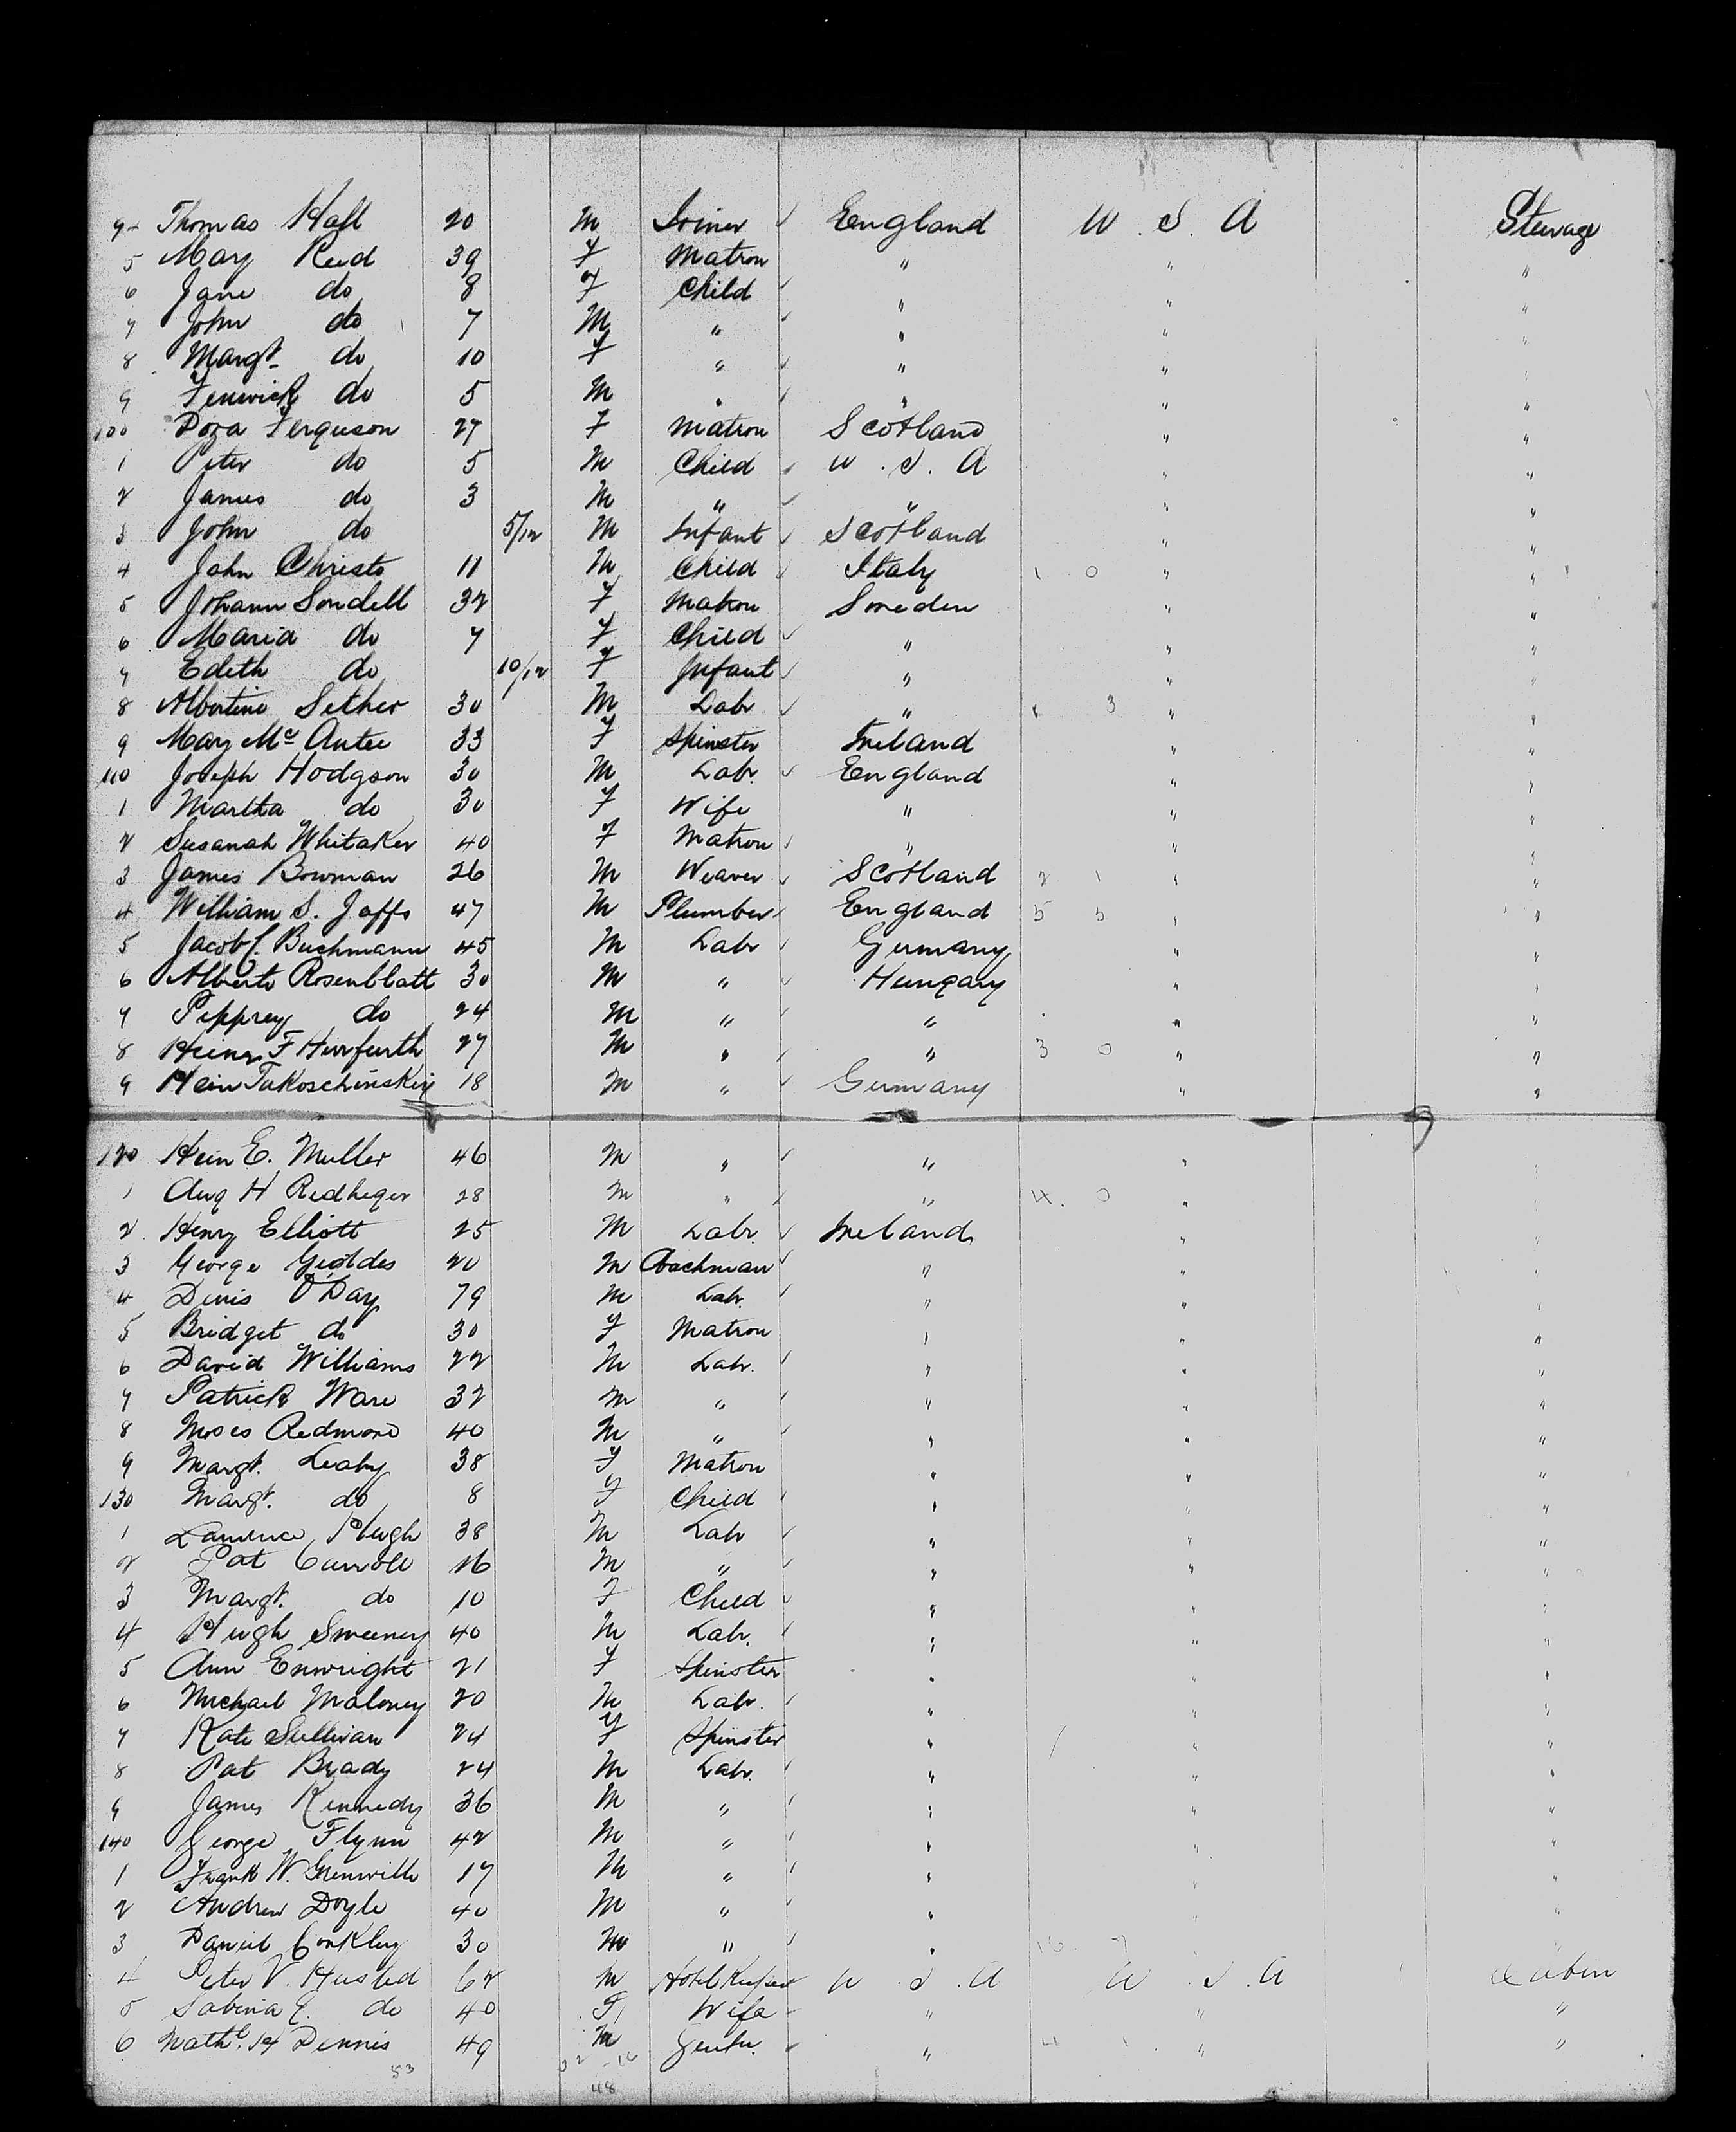 94 Thomas Hall 20 M Joiner ✓ England U.S.A Steerage
5 Mary Reed 39 F Matron " " "
6 Jane do 8 F Child ✓ " " "
7 John do 7 M " ✓ " " "
8 Margt. do 10 F " ✓ " " "
9 Fenwick do 5 M " ✓ " " "
100 Dora Ferguson 27 F Matron Scotland " "
1 Peter do 5 M Child U.S.A " "
2 James do 3 M " ✓ " " "
3 John do 5/12 M Infant ✓ Scotland " "
4 John Christo 11 M Child ✓ Italy 1 0 " "
5 Johann Sondell 32 F Matron Sweden " "
6 Maria do 7 F Child ✓ " " "
7 Edith do 10/12 F Infant ✓ " " "
8 Albertine Sether 30 M Labr ✓ " 1 3 " "
9 Mary Mc Antee 33 F Spinster Ireland " "
110 Joseph Hodgson 30 M Labr. ✓ England " "
1 Martha do 30 F Wife " " "
2 Susanah Whitaker 40 F Matron " " "
3 James Bowman 26 M Weaver ✓ Scotland 2 1 " "
4 William S. Joffs 47 M Plumber England 5 5 " "
5 Jacob C. Buchmann 45 M Labr ✓ Germany " "
6 Alberto Rosenblatt 30 M " ✓ Hungary " "
7 Pepprey do 24 M " ✓ " " "
8 Heinr F Hurfurth 27 M " ✓ " 3 0 " "
9 Hein Tukoschinskiy 18 M " ✓ Germany " "
120 Hein E. Muller 46 M " ✓ " " "
1 Aug H Redheger 28 M " ✓ " 4. 0 " "
2 Henry Elliott 25 M Labr. ✓ Ireland " "
3 George Geddes 20 M Coachman ✓ " " "
4 Denis O'Day 79 M Labr. ✓ " " "
5 Bridget do 30 F Matron " " "
6 David Williams 22 M Labr. ✓ " " "
7 Patrick Ware 32 M " ✓ " " "
8 Moses Redmond 40 M " ✓ " " "
9 Margt. Leahy 38 F Matron " " "
130 Margt. do 8 F Child " " "
1 Laurence Hugh 38 M Labr ✓ " " "
2 Pat Carroll 16 M " ✓ " " "
3 Margt. do 10 F Child ✓ " " "
4 Hugh Sweeney 40 M Labr. ✓ " " "
5 Ann Enwright 21 F Spinster " " "
6 Michael Maloney 20 M Labr. ✓ " " "
7 Kate Sullivan 24 F Spinster " " "
8 Pat Brady 24 M Labr. " " "
9 James Kennedy 36 M " ✓ " " "
140 George Flynn 42 M " ✓ " " "
1 Frank W. Grenville 17 M " ✓ " " "
2 Andrew Doyle 40 M " ✓ " " "
3 Daniel Conkley 30 M " ✓ " 16. 7
4 Peter V. Husted 62 M Hotel Keeper U.S.A U.S.A Cabin
5 Sabina E. do 40 F Wife " " "
6 Nathl. H Dennis 49 M Gentn. " 4 " "
53 32 16
48